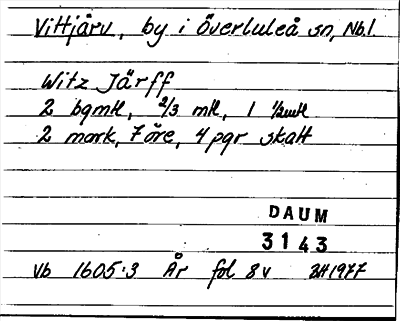 Vittjärv, by i Överluleå sn, Nb.l.
Witz Järff
2 bgmtl, 2/3 mtl, 1 1/2mtl
2 mark, 7 öre, 4 pgr skatt
DAUM
3143
Vb 1605:3 År fol 8v BH1977